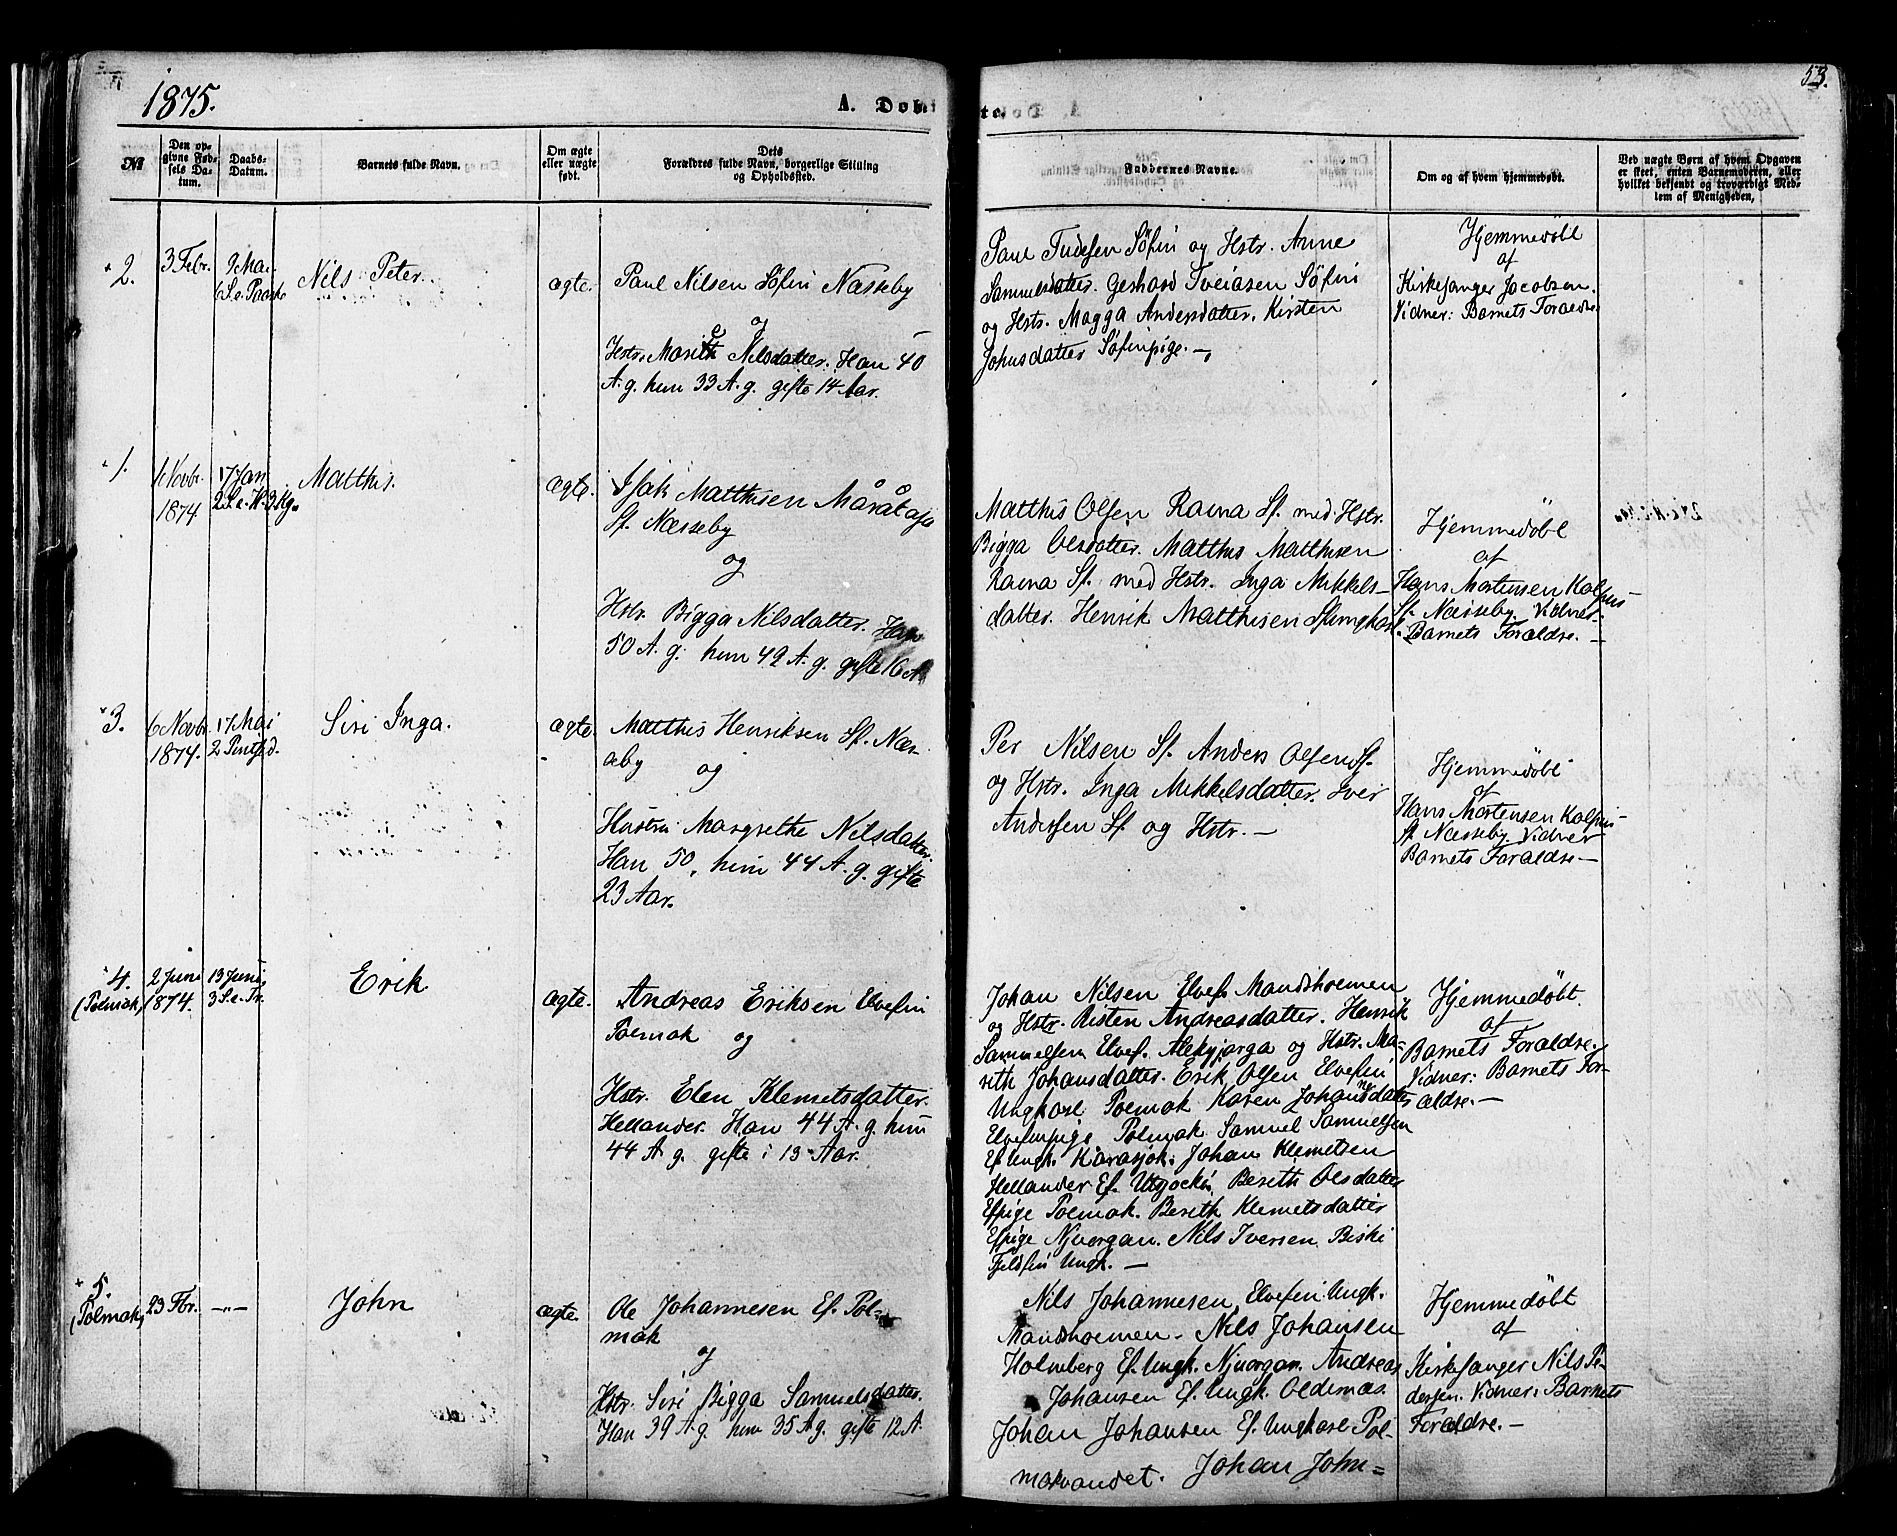 1875.
A. Døbte.
53.
№
Den opgivne Fødsels Datum.
Daabs-Datum.
Barnets fulde Navn.
Om ægte eller uægte født.
Dets Forældres fulde Navn, borgerlige Stilling og Opholdssted.
Faddernes Navne.
Om og af hvem hjemmedøbt.
Ved uægte Børn af hvem Opgaven er skeet, enten Barnemoderen, eller hvilket bekjendt og troværdigt Medlem af Menigheden,
2.
3 Febr.
9 Mai
6 S. e. Paaske
Nils Peter.
ægte.
Paul Nilsen Søfin Næsseby
og
Hstr. Marith Nilsdatter. Han 40
A. g. hun 33 A. g. gifte 14 Aar.
Paul Tudesen Søfin og Hstr. Anne
Samuelsdatter. Gerhard Tveiasen Søfin
og Hstr. Magga Andersdatter. Kirsten
Johnsdatter Søfinpige. —
Hjemmedøbt
af
Kirkesanger Jacobsen.
Vidner: Barnets Foraeldre
1.
6 Novbr.
1874
17 Jan
2 S. e. H. 3 Kg.
Matthis.
ægte.
Isak Matthisen
Sf. Næsseby
og
Hstr. Bigga Nilsdatter. Han
50 A. g. hun 49 A. g. gifte 16 A
Matthis Olsen Rauna Sf. med Hstr.
Bigga Olsdatter. Matthis Matthisen
Rauna Sf. med Hstr. Inga Mikkels-
datter. Henrik Matthisen
Hjemmedøbt
af
Hans Mortensen Kalpus
Sf. Næsseby. Vidner
Barnets Foraldre. —
3.
6 Novbr.
1874.
17 Mai
2 Pintsed.
Siri Inga.
ægte.
Matthis Henriksen Sf. Næs-
seby og
Hustru Margrethe Nilsdatter.
Han 50, hun 44 A. g. gifte
23 Aar.
Per Nilsen Sf. Anders Olsen Sf.
og Hstr. Inga Mikkelsdatter. Iver
Andersen Sf. og Hstr. —
Hjemmedøbt
af
Hans Mortensen Kalpus
Sf. Næsseby Vidner
Barnets Foraldre —
4.
(Polmak)
2 Juni
1874.
13 Juni
3 S. e. Tr.
Erik
ægte.
Andreas Eriksen Elvefin
Polmak og
Hstr. Elen Klemetsdatter
Hellander. Han 44 A. g. hun
44 A g. gifte i 13 Aar.
Johan Nilsen Elvef. Mandsholmen
og Hstr. Risten Andreasdatter. Henrik
Samuelsen Elvef. Alekjarga og Hstr. Ma-
rith Johansdatter. Erik Olsen Elvefin
Ungkarl Polmak Karen Johannsdatter
Elvefinpige Polmak. Samuel Samuelsen
Ef. Ungk. Karasjok. Johan Klemetsen
Hellander Ef. Utsjocki. Berith Olsdatter
Efpige Polmak. Berith Klemetsdatter
Efpige Njuorgan. Nils Iversen Biski
Fjeldfin Ungk. —
Hjemmedøbt.
af
Barnets Foraldre.
Vidner: Barnets For-
ældre. —
5.
(Polmak)
23 Fbr.
—"—
John
ægte.
Ole Johannesen Ef. Pol-
mak
og
Hstr. Siri Bigga Samuelsdatter.
Han 39 A g. hun 35 A g. gifte 12 A.
Nils Johannesen Elvefin Ungk.
Mandsholmen. Nils Johansen
Holmberg Ef. Ungk. Njuorgan. Andreas
Johansen Ef. Ungk. Oldernæs.
Johan Johansen Ef. Ungkarl Pol-
makvandet. Johan John=
Hjemmedøbt
af
Kirkesanger Nils Pe-
dersen. Vidner: Barnets
Foraldre. —